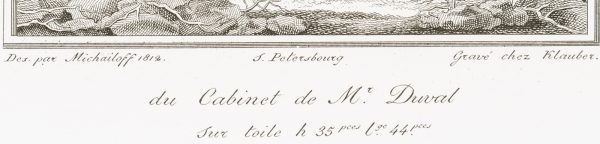 Des. par Michailoff 1812. S. Petersbourg Gravé chez Klauber.
du Cabinet de Mr. Duval
sur toile h 35 pces lge. 44. pces